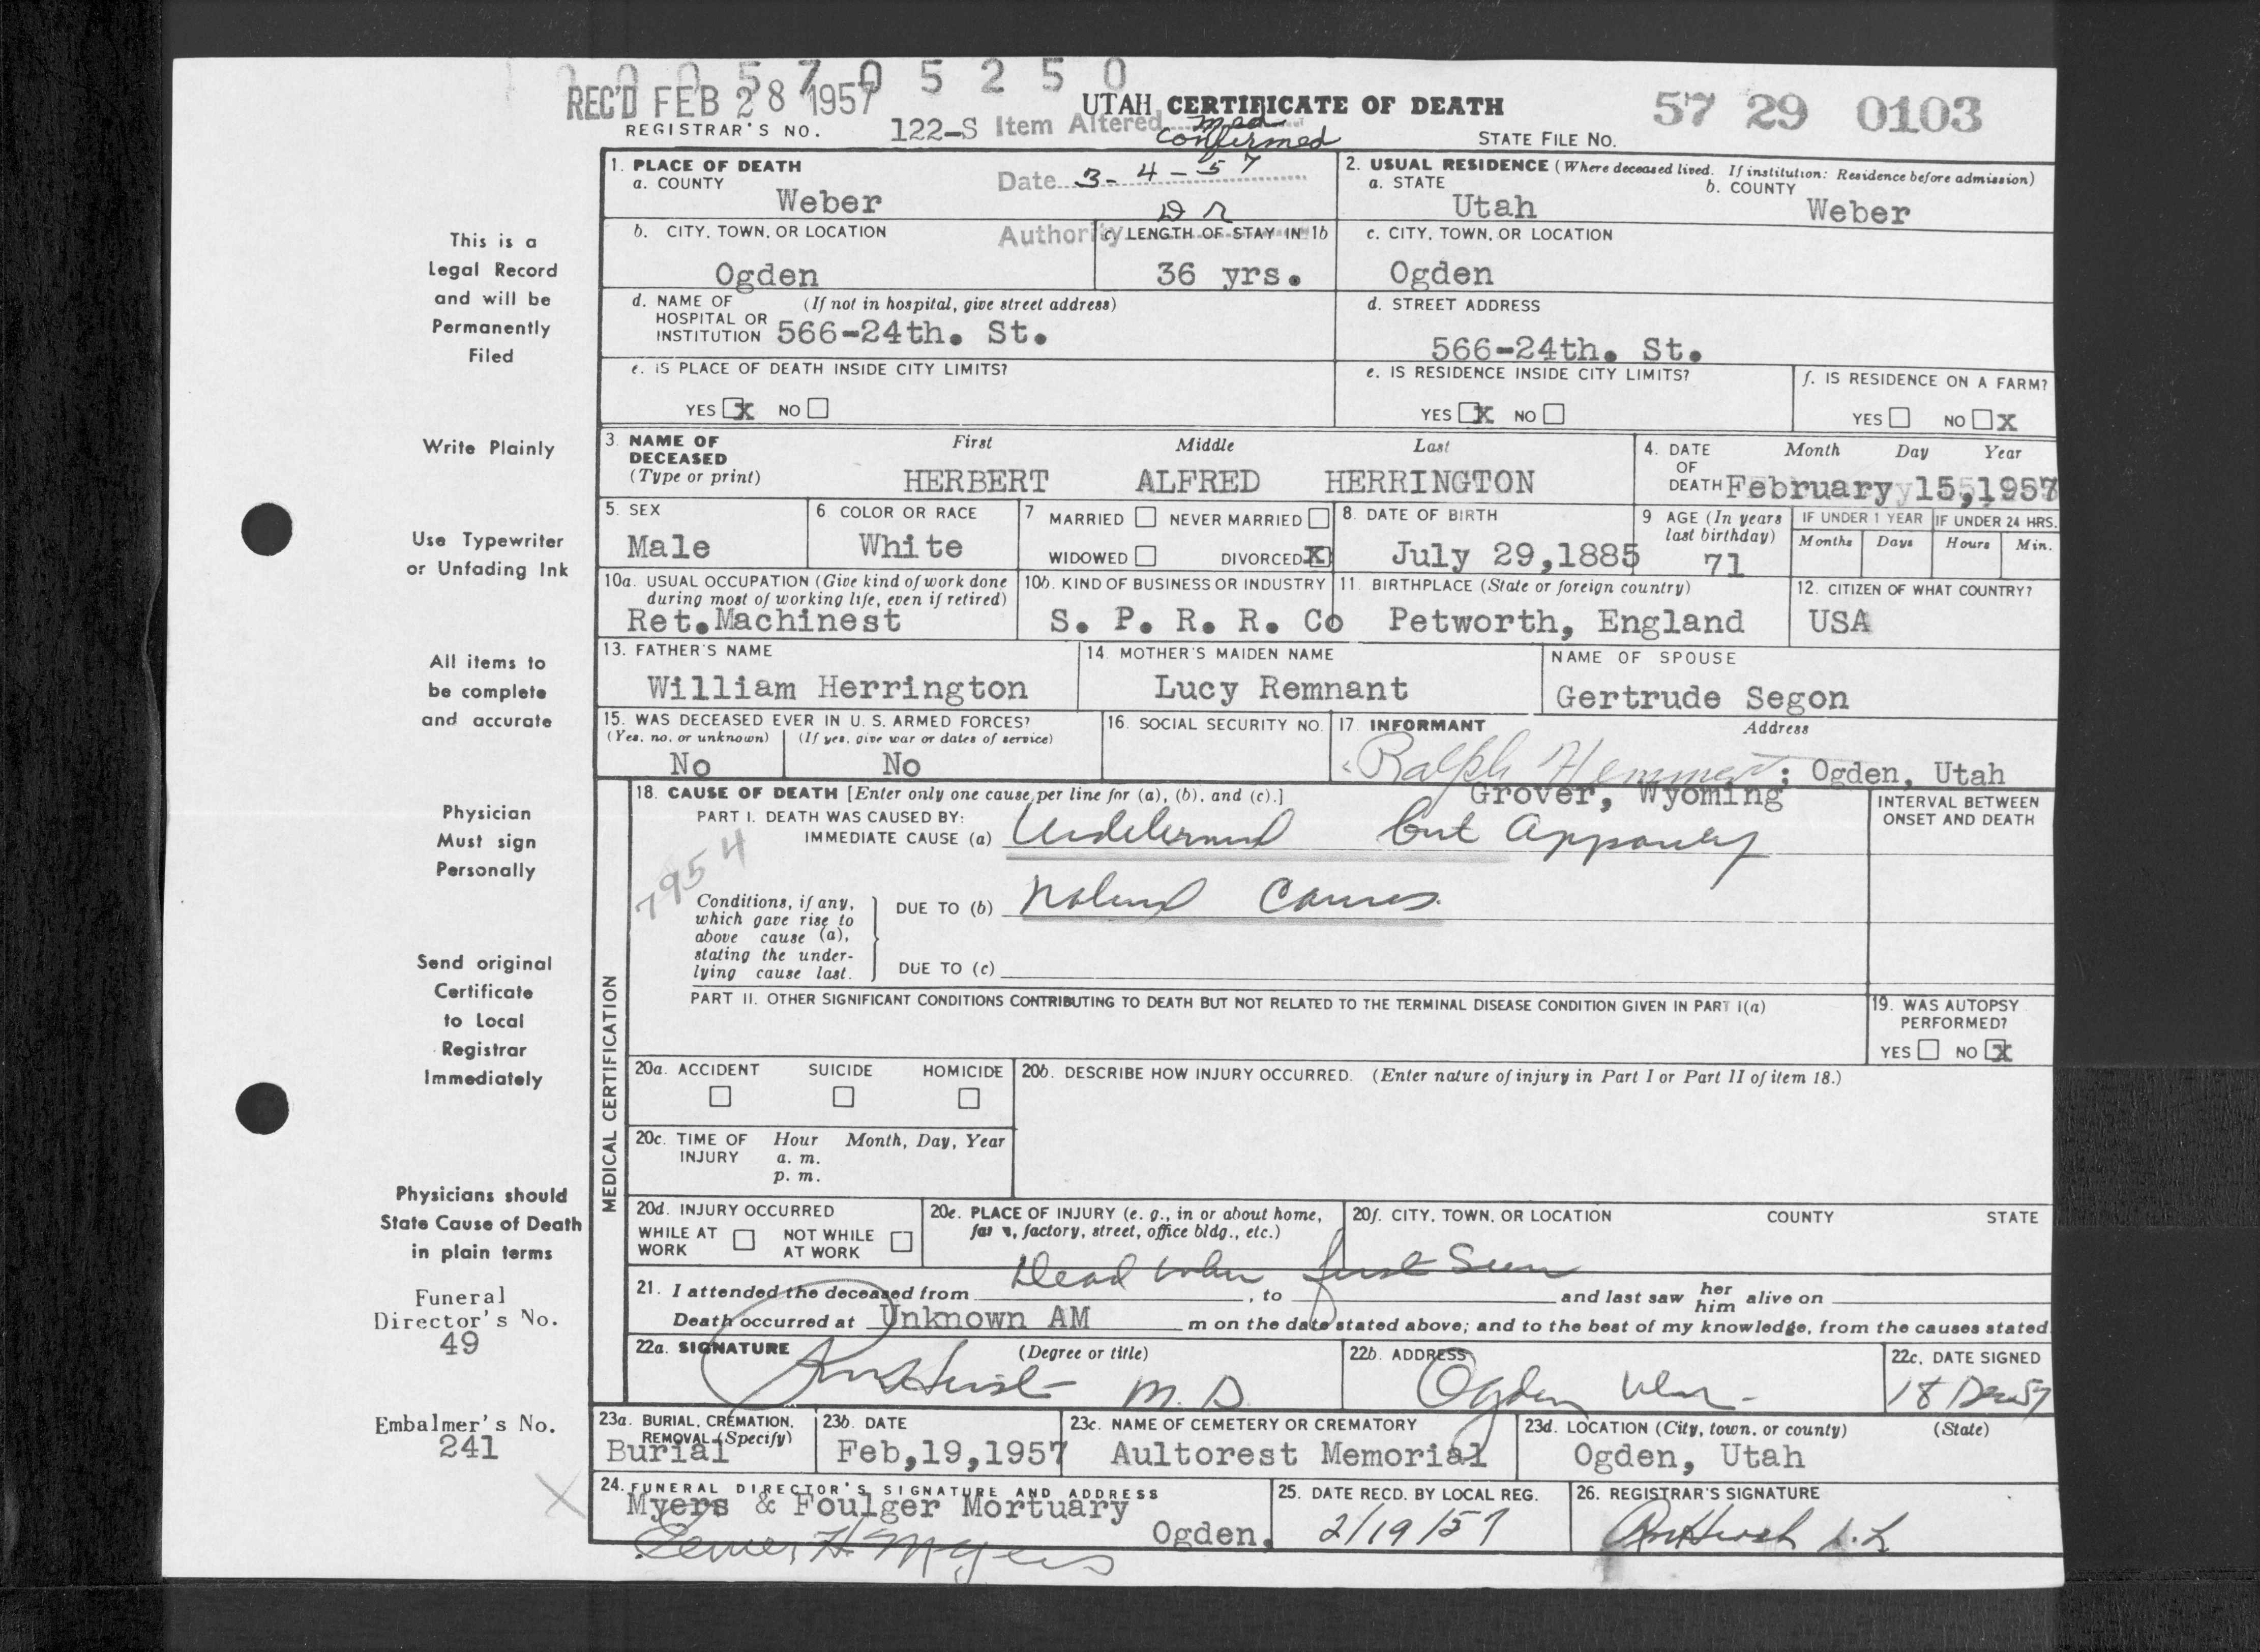 0 0 5 7 0 5 2 5 0
REC'D FEB 28 1957
UTAH CERTIFICATE OF DEATH
57 29 0103
REGISTRAR'S NO. 122-S Item Altered med
confirmed
STATE FILE No.
Date 3-4-57
Authority DR
1. PLACE OF DEATH
a. COUNTY
Weber
2. USUAL RESIDENCE (Where deceased lived. If institution: Residence before admission)
a. STATE b. COUNTY
Utah Weber
b. CITY, TOWN, OR LOCATION
Ogden
c. LENGTH OF STAY IN 1b
36 yrs.
c. CITY, TOWN, OR LOCATION
Ogden
d. NAME OF (If not in hospital, give street address)
HOSPITAL OR
INSTITUTION 566-24th. St.
d. STREET ADDRESS
566-24th. St.
e. IS PLACE OF DEATH INSIDE CITY LIMITS?
YES X NO
e. IS RESIDENCE INSIDE CITY LIMITS?
YES X NO
f. IS RESIDENCE ON A FARM?
YES NO X
3. NAME OF
DECEASED
(Type or print)
First Middle Last
HERBERT ALFRED HERRINGTON
4. DATE Month Day Year
OF
DEATH February 15,1957
5. SEX
Male
6 COLOR OR RACE
White
7 MARRIED NEVER MARRIED
WIDOWED DIVORCED X
8. DATE OF BIRTH
July 29,1885
9 AGE (In years
last birthday)
71
IF UNDER 1 YEAR IF UNDER 24 HRS.
Months Days Hours Min.
10a. USUAL OCCUPATION (Give kind of work done
during most of working life, even if retired)
Ret.Machinest
10b. KIND OF BUSINESS OR INDUSTRY
S. P. R. R. Co
11. BIRTHPLACE (State or foreign country)
Petworth, England
12. CITIZEN OF WHAT COUNTRY?
USA
13. FATHER'S NAME
William Herrington
14. MOTHER'S MAIDEN NAME
Lucy Remnant
NAME OF SPOUSE
Gertrude Segon
15. WAS DECEASED EVER IN U. S. ARMED FORCES?
(Yes, no, or unknown) (If yes, give war or dates of service)
No No
16. SOCIAL SECURITY NO.
17. INFORMANT Address
Ralph ; Ogden, Utah
Grover, Wyoming
MEDICAL CERTIFICATION
18. CAUSE OF DEATH [Enter only one cause per line for (a), (b), and (c).]
PART I. DEATH WAS CAUSED BY:
IMMEDIATE CAUSE (a) but
7954
Conditions, if any,
which gave rise to
above cause (a),
stating the under-
lying cause last.
DUE TO (b) Natural Causes
DUE TO (c)
INTERVAL BETWEEN
ONSET AND DEATH
PART II. OTHER SIGNIFICANT CONDITIONS CONTRIBUTING TO DEATH BUT NOT RELATED TO THE TERMINAL DISEASE CONDITION GIVEN IN PART I(a)
19. WAS AUTOPSY
PERFORMED?
YES NO X
20a. ACCIDENT SUICIDE HOMICIDE
20b. DESCRIBE HOW INJURY OCCURRED. (Enter nature of injury in Part I or Part II of item 18.)
20c. TIME OF Hour Month, Day, Year
INJURY a. m.
p. m.
20d. INJURY OCCURRED
WHILE AT NOT WHILE
WORK AT WORK
20e. PLACE OF INJURY (e. g., in or about home,
farm, factory, street, office bldg., etc.)
20f. CITY, TOWN, OR LOCATION COUNTY STATE
Dead when first Seen
21. I attended the deceased from , to and last saw her
him alive on
Death occurred at Unknown AM m on the date stated above; and to the best of my knowledge, from the causes stated
22a. SIGNATURE (Degree or title)
M. D.
22b. ADDRESS
Ogden
22c. DATE SIGNED
18
23a. BURIAL, CREMATION,
REMOVAL (Specify)
Burial
23b. DATE
Feb,19,1957
23c. NAME OF CEMETERY OR CREMATORY
Aultorest Memorial
23d. LOCATION (City, town, or county) (State)
Ogden, Utah
24. FUNERAL DIRECTOR'S SIGNATURE AND ADDRESS
Myers & Foulger Mortuary
Ogden.
H. Myers
25. DATE RECD. BY LOCAL REG.
2/19/57
26. REGISTRAR'S SIGNATURE
This is a
Legal Record
and will be
Permanently
Filed
Write Plainly
Use Typewriter
or Unfading Ink
All items to
be complete
and accurate
Physician
Must sign
Personally
Send original
Certificate
to Local
Registrar
Immediately
Physicians should
State Cause of Death
in plain terms
Funeral
Director's No.
49
Embalmer's No.
241